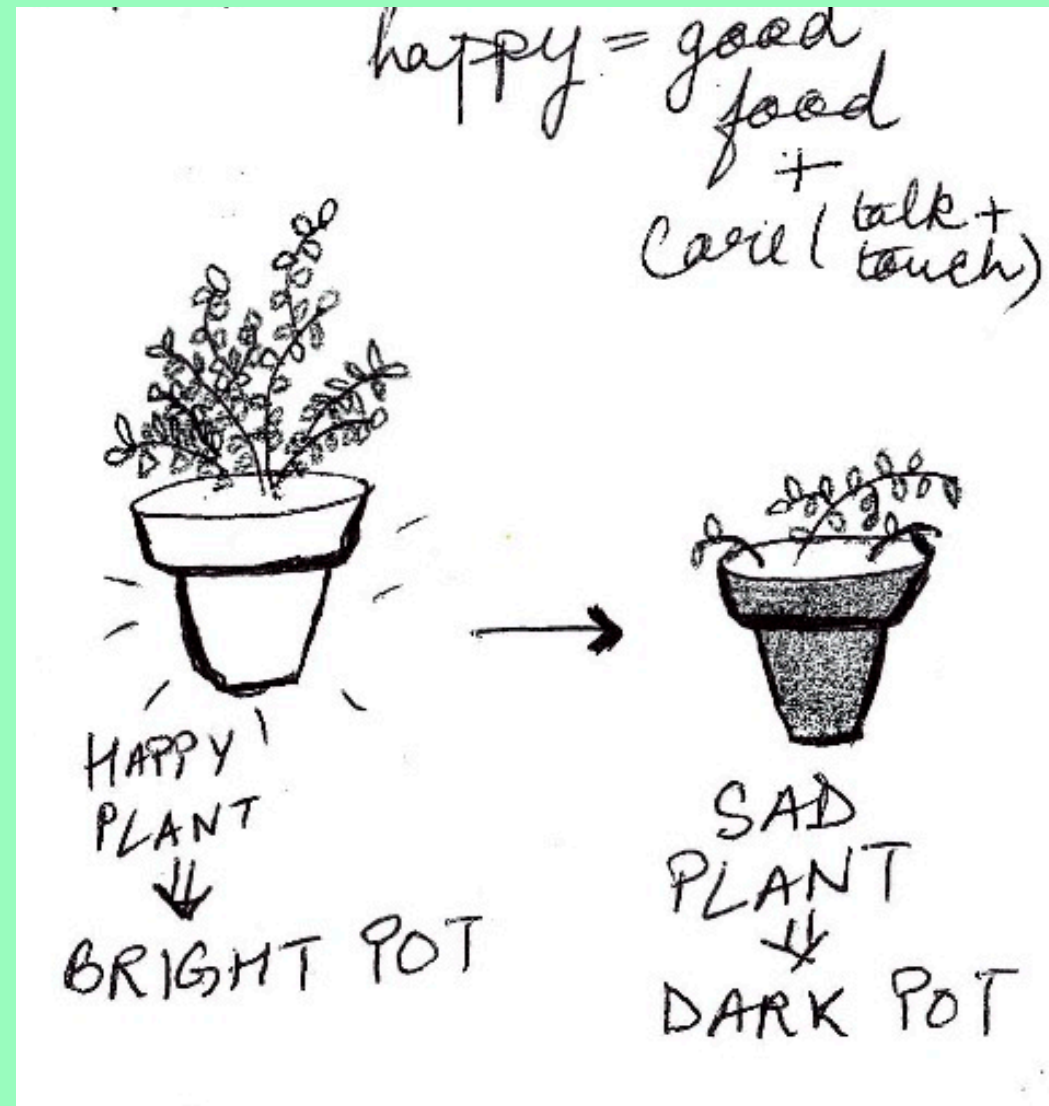 happy = good
food
+
Care (talk +
touch)
HAPPY
PLANT
BRIGHT POT
SAD
PLANT
DARK POT